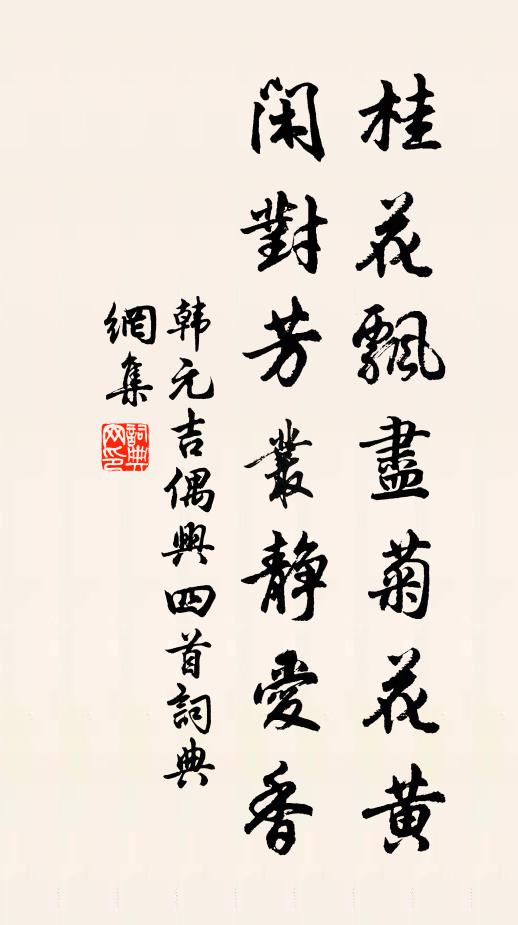 桂花飄盡菊花黄
閑對芳叢静愛香
韩元吉偶興四首詞典
網集
詞典网印